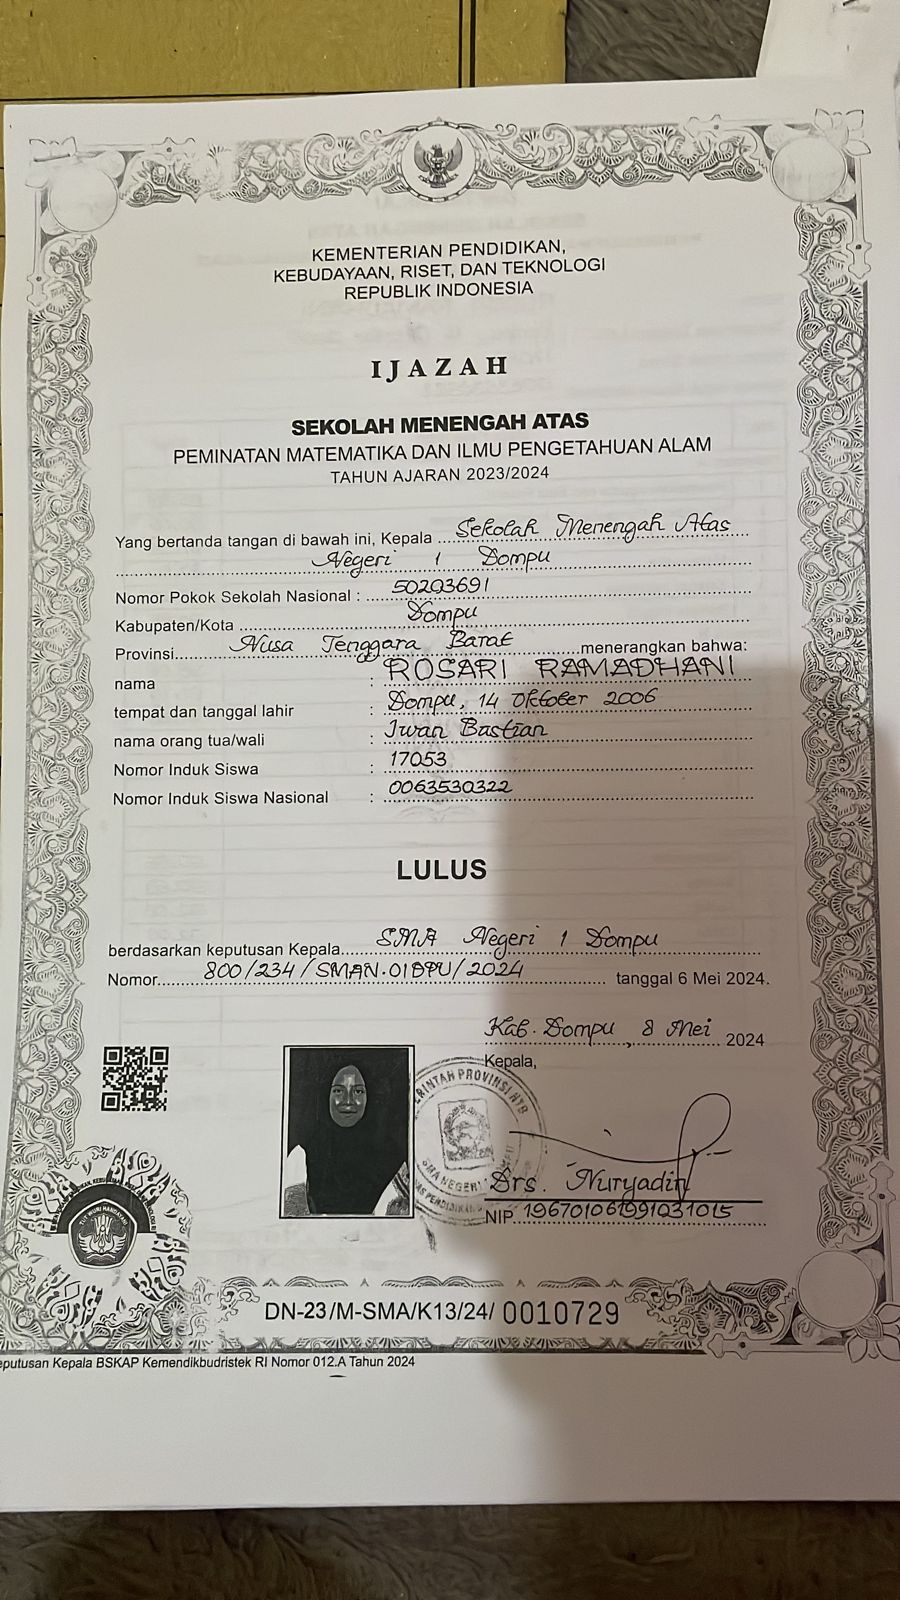 KEMENTERIAN PENDIDIKAN,
KEBUDAYAAN, RISET, DAN TEKNOLOGI
REPUBLIK INDONESIA
IJAZAH
SEKOLAH MENENGAH ATAS
PEMINATAN MATEMATIKA DAN ILMU PENGETAHUAN ALAM
TAHUN AJARAN 2023/2024
Yang bertanda tangan di bawah ini, Kepala Sekolah Menengah Atas
Negeri 1 Dompu
Nomor Pokok Sekolah Nasional : 50203691
Kabupaten/Kota Dompu
Provinsi Nusa Tenggara Barat menerangkan bahwa:
nama : ROSARI RAMADHANI
tempat dan tanggal lahir : Dompu, 14 Oktober 2006
nama orang tua/wali : Iwan Bastian
Nomor Induk Siswa : 17053
Nomor Induk Siswa Nasional : 0063530322
LULUS
berdasarkan keputusan Kepala SMA Negeri 1 Dompu
Nomor 800/234/SMAN.01DPU/2024 tanggal 6 Mei 2024.
Kab. Dompu, 8 Mei 2024
Kepala,
Drs. Nuryadin
NIP 196701061991031015
TUT WURI HANDAYANI
DN-23/M-SMA/K13/24/ 0010729
Kepala BSKAP Kemendikbudristek RI Nomor 012.A Tahun 2024